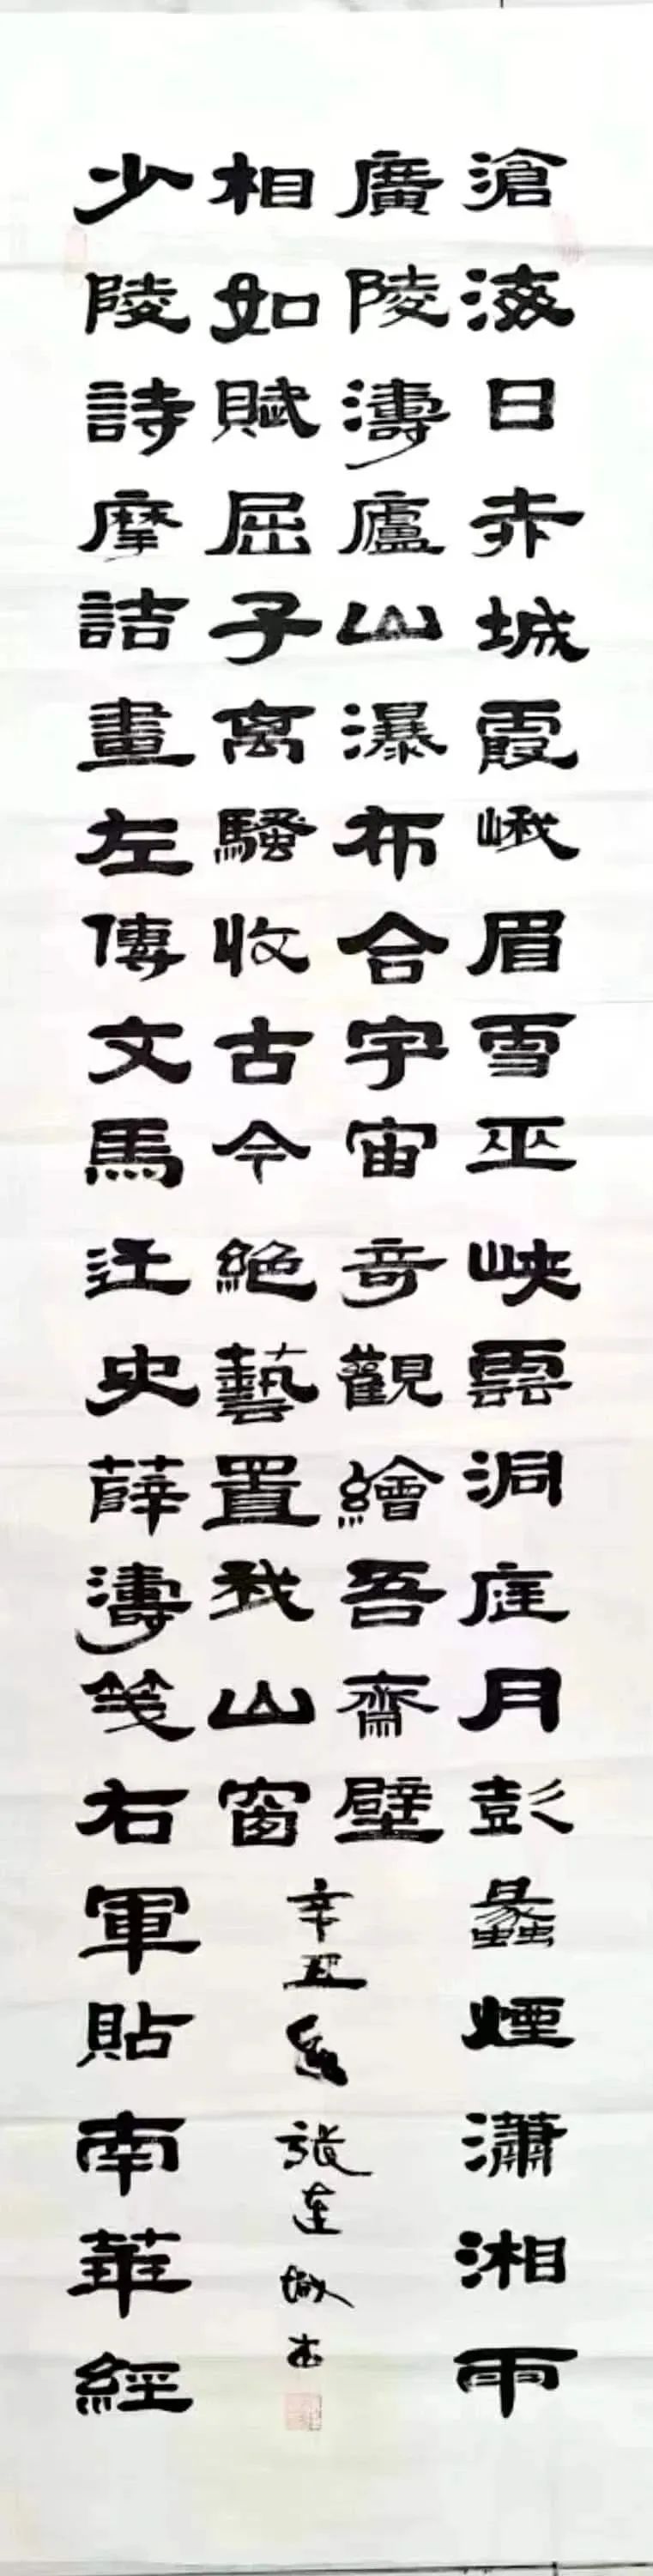 滄海日赤城霞峨眉雪巫峽雲洞庭月彭蠡煙瀟湘雨
廣陵濤廬山瀑布合宇宙奇觀繪吾齋壁
少陵詩摩詰畫左傳文馬迁史薛濤笺右軍貼南華經
相如賦屈子离騷收古今絕藝置我山窗
辛丑冬張連城书